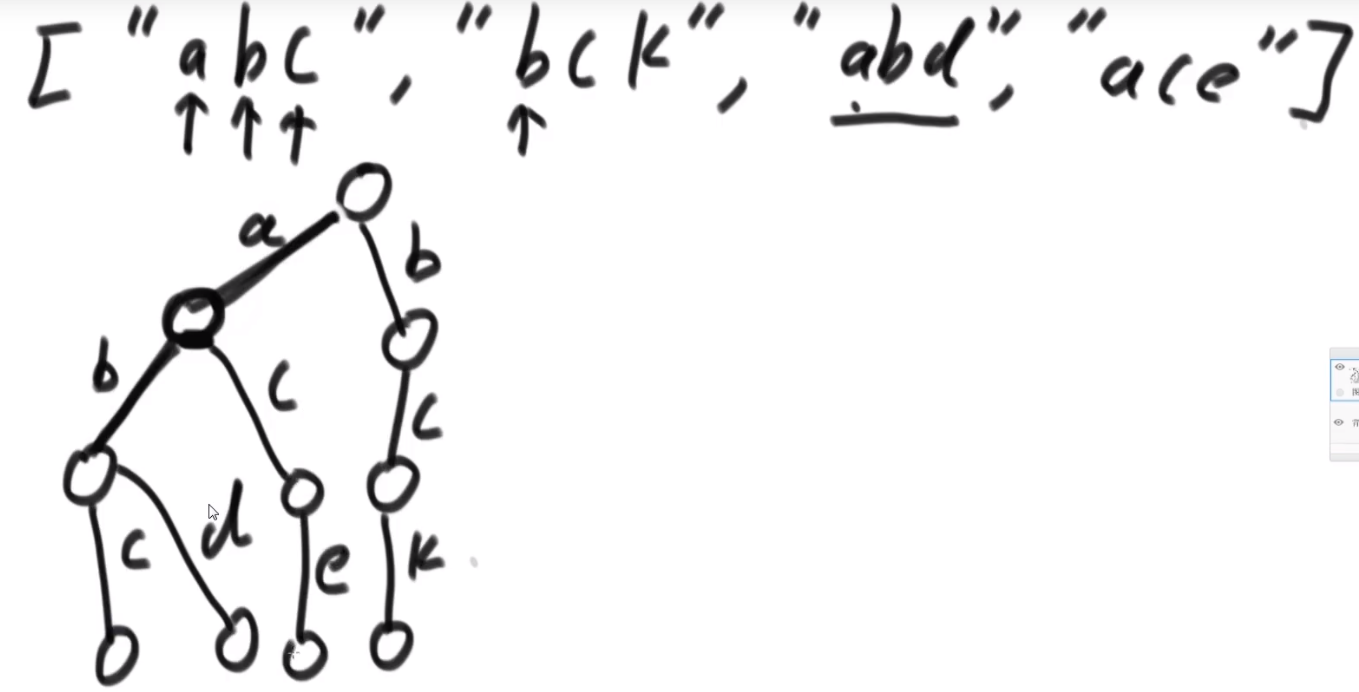 ["abc", "bck", "abd", "ace"]
a
b
b
c
c
c
d
e
k